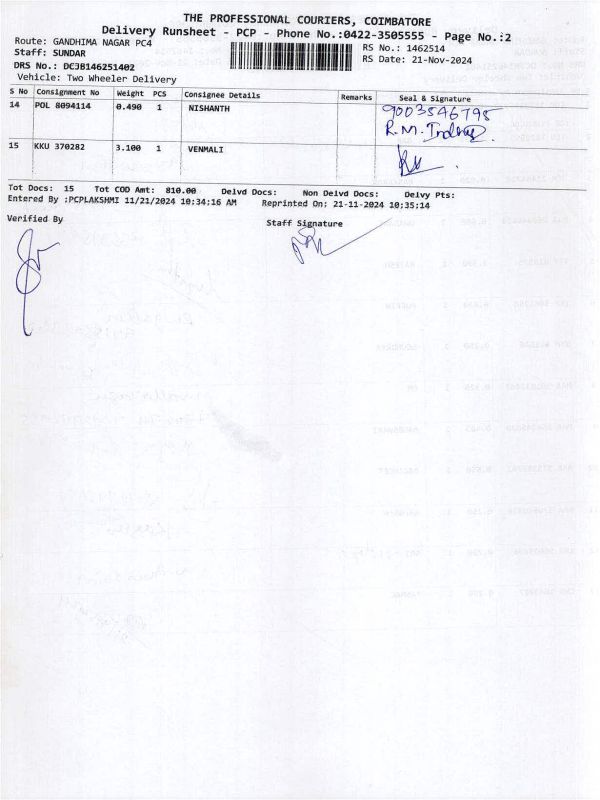 THE PROFESSIONAL COURIERS, COIMBATORE
Delivery Runsheet - PCP - Phone No.:0422-3505555 - Page No.:2
Route: GANDHIMA NAGAR PC4
RS No.: 1462514
Staff: SUNDAR
RS Date: 21-Nov-2024
DRS No.: DC3B146251402
Vehicle: Two Wheeler Delivery
S No Consignment No Weight PCS Consignee Details Remarks Seal & Signature
14 POL 8094114 0.490 1 NISHANTH 9003546795
R.M.
15 KKU 370282 3.100 1 VENMALI
Tot Docs: 15 Tot COD Amt: 810.00 Delvd Docs: Non Delvd Docs: Delvy Pts:
Entered By :PCPLAKSHMI 11/21/2024 10:34:16 AM Reprinted On: 21-11-2024 10:35:14
Verified By Staff Signature